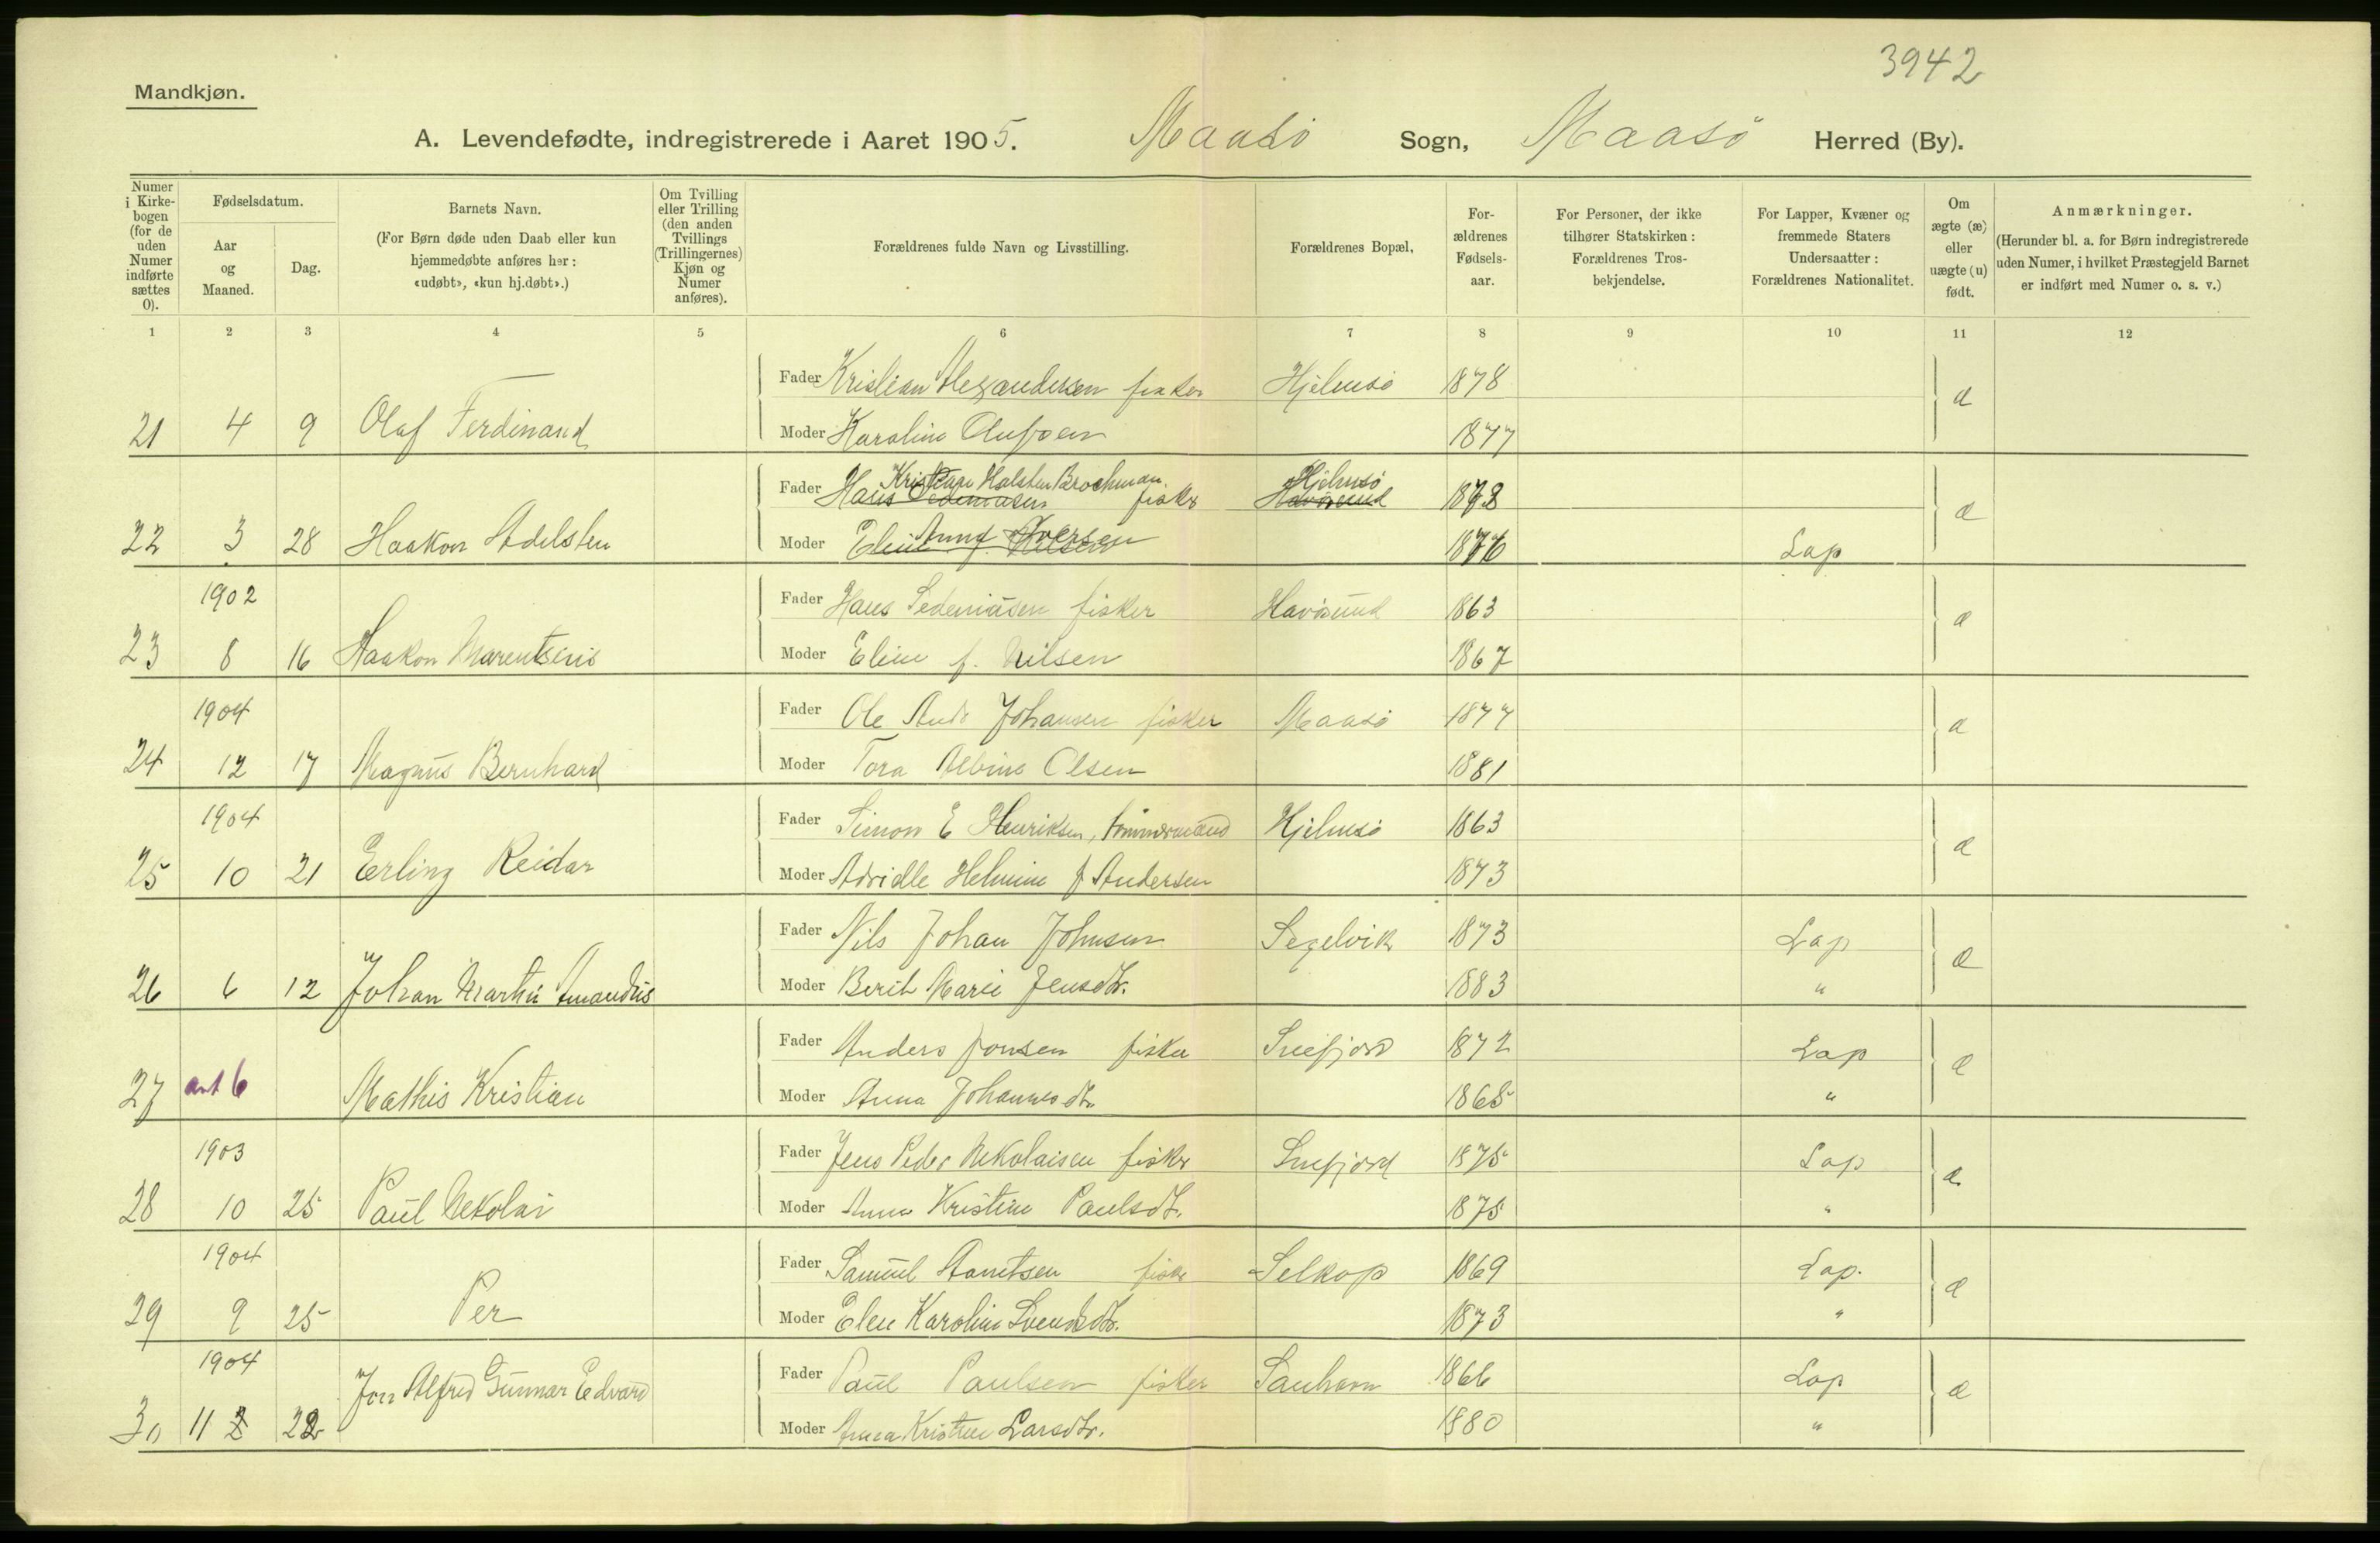 3942
Mandkjøn.
A. Levendefødte, indregistrerede i Aaret 1905. Maasö Sogn, Maasö Herred (By).
Numer i Kirkebogen (for de uden Numer indførte sættes 0).
Fødselsdatum.
Aar og Maaned.
Dag.
Barnets Navn.
(For Børn døde uden Daab eller kun hjemmedøbte anføres her: «udøbt», «kun hj.døbt».)
Om Tvilling eller Trilling (den anden Tvillings (Trillingernes) Kjøn og Numer anføres).
Forældrenes fulde Navn og Livsstilling.
Forældrenes Bopæl,
Forældrenes Fødselsaar.
For Personer, der ikke tilhører Statskirken: Forældrenes Trosbekjendelse.
For Lapper, Kvæner og fremmede Staters Undersaatter: Forældrenes Nationalitet.
Om ægte (æ) eller uægte (u) født.
Anmærkninger.
(Herunder bl. a. for Børn indregistrerede uden Numer, i hvilket Præstegjeld Barnet er indført med Numer o. s. v.)
1 2 3 4 5 6 7 8 9 10 11 12
Fader Kristian Alexandersen fisker Hjelmsö 1878 æ
21 4 9 Olaf Ferdinand Moder Karoline 1877
Kristian Halsten Brochman. Hjelmsö
Fader Hans Sedeniasen fisker Havösund 1878 æ
Anna Iversen
22 3 28 Haakon Adelsten Moder Eline f. Nilsen 1876 Lap
1902 Fader Hans Sedeniasen fisker Havösund 1863 æ
23 8 16 Haakon Marentsius Moder Eline f. Nilsen 1867
1904 Fader Ole Andr Johansen fisker Maasö 1877 æ
24 12 17 Magnus Bernhard Moder Tora Albine Olsen 1881
1904 Fader Simon E Henriksen, tömmermand Hjelmsö 1863 æ
25 10 21 Erling Reidar Moder Helmine f Andersen 1873
Fader Nils Johan Johnsen Segelvik 1873 Lap æ
26 6 12 Johan Martin Amandus Moder Berit Marie Jensdtr. 1883 "
Fader Anders Jonsen fisker Snefjord 1872 Lap æ
27 ant 6 Mathis Kristian Moder Anna Johannesdtr 1865 "
1903 Fader Jens Peder Nekolaisen fisker Snefjord 1875 Lap æ
28 10 25 Paul Nekolai Moder Anna Kristine Paulsdtr. 1875 "
1904 Fader Samuel Aanetsen fisker Selkop 1869 Lap. æ
29 9 25 Per Moder Elen Karoline 1873 "
1904 Jon Alfred Gunnar Edvard Fader Paul Paulsen fisker Sauhavn 1866 Lap æ
30 11 2 22 Moder Anna Kristine Larsdtr. 1880 "